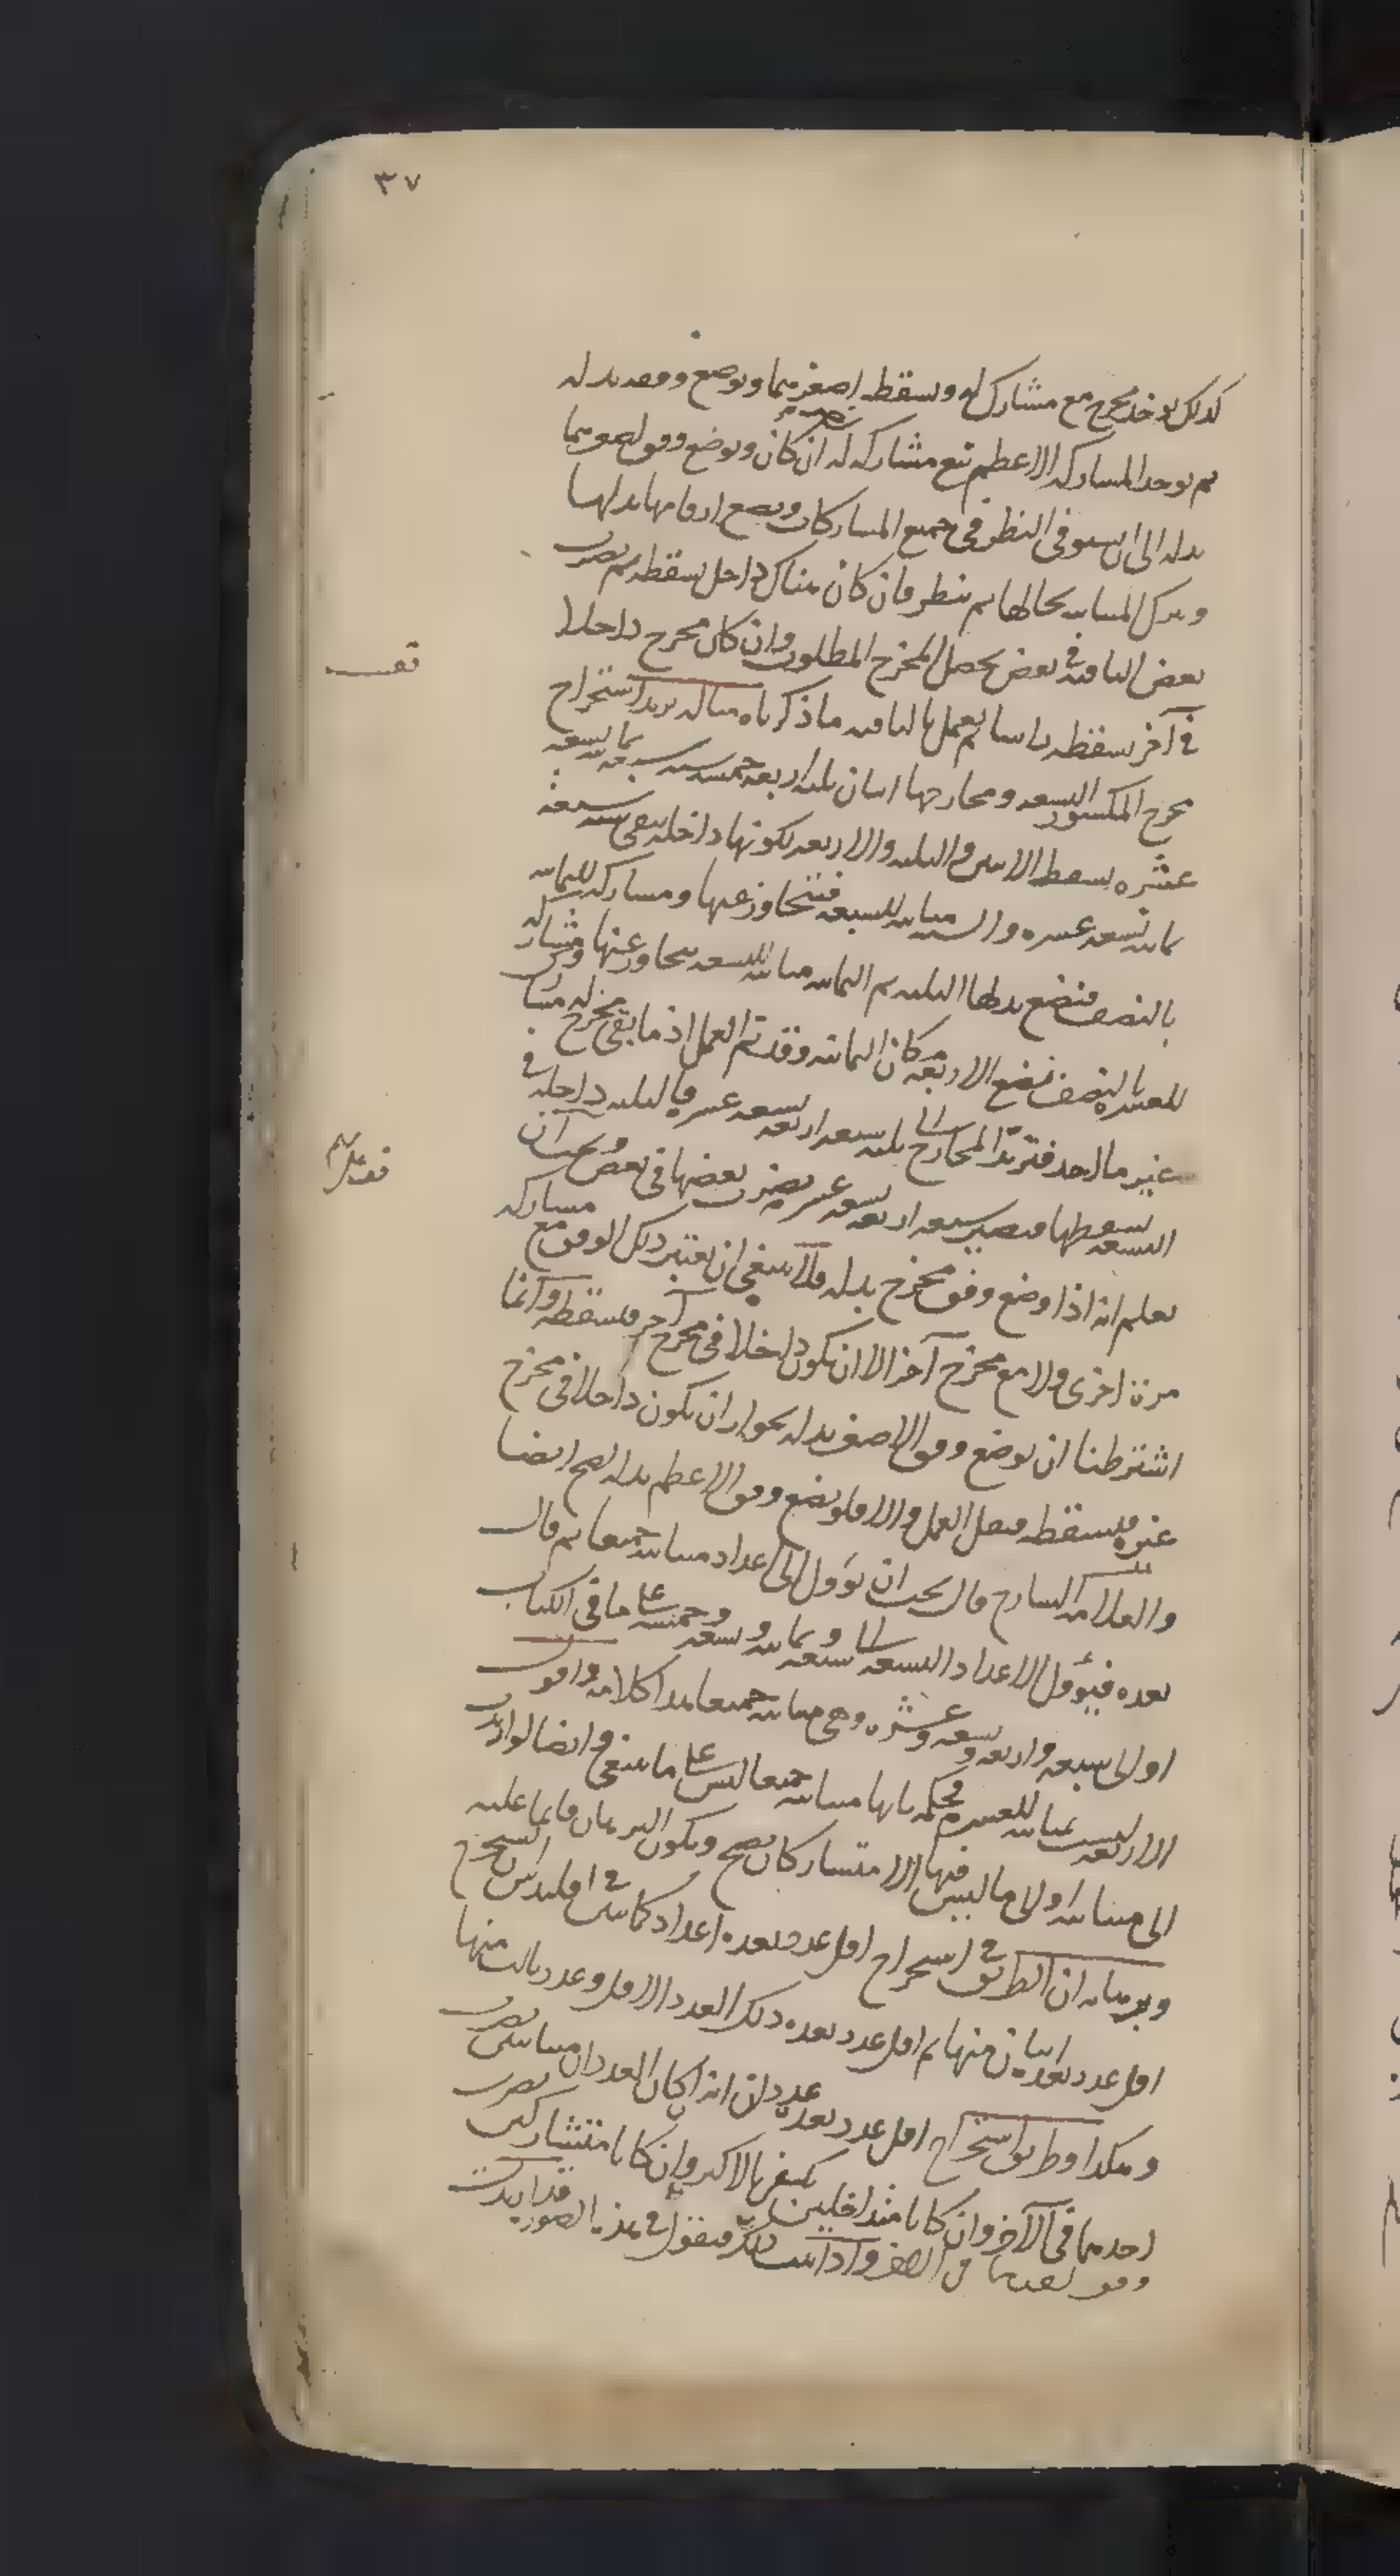 ٣٧
كذلك يوخذ مخرج مع مشارك له ويسقط اصغرهما ويوضع وفقه بدله
ثم يوخذ المشارك الاعظم مع مشارك له ان كان ويوضع وفق اصغرهما
بدله الى ان يستوفى النظر فى جميع المشاركات ويضع اوفاقها بدلها
ويترك المتباينه بحالها ثم ينظر فان كان هناك داخل يسقطه ثم يضرب
بعض الباقيه فى بعض يحصل المخرج المطلوب وان كان مخرج داخلا
فى آخر سقطه راسا ثم يعمل بالباقيه ما ذكرناه مثاله نريد استخراج
مخرج الكسور التسعه ومخارجها اثنان ثلثه اربعه خمسه سته سبعه ثمانيه تسعه
عشره يسقط الاثنين والثلثه والاربعه لكونها داخله يبقى سته سبعه
ثمانيه تسعه عشره والسته مباينه للسبعه فنتجاوز عنها ومشاركه للثمانيه
بالنصف فنضع بدلها الثلثه ثم الثمانيه مباينه للتسعه نتجاوز عنها ومشاركه
للعشره بالنصف فنضع الاربعه مكان الثمانيه وقد تم العمل اذ ما بقى مخرج له مشارك
غير ماخذ فترتد المخارج الى ثلثه سبعه اربعه تسعه عشره والثلثه داخله فى
التسعه نسقطها فيصير سبعه اربعه تسعه عشره يضرب بعضها فى بعض ويجب ان
يعلم انه اذا وضع وفق مخرج بدله فلا ينبغى ان يعتبر ذلك الوفق مع مشاركه
مرة اخرى ولا مع مخرج آخر الا ان يكون داخلا فى مخرج آخر فيسقطه وانما
اشترطنا ان يوضع وفق الاصغر بدله لجواز ان يكون داخلا فى مخرج
غيره فيسقط فيقل العمل والا فلو يضع وفق الاعظم بدله لصح ايضا
والعلامه الشارح قال يجب ان يؤول الى اعداد متباينه جميعا ثم قال
بعده فيؤول الاعداد التسعه الى سبعه وثمانيه وتسعه وخمسه على ما فى الكتاب
او الى سبعه واربعه وتسعه وعشره وهى متباينه جميعا هذا كلامه واقول
الاربعه ليست مباينه للعشره فحكمه بانها متباينه جميعا ليس على ما ينبغى وايضا لو ارتدت
الى متباينه او الى ما ليس فيها الا متشاركان يصح ويكون البرهان قائما عليه
وبرهانه ان الطريق فى استخراج اقل عدد يعده اعداد كما تبين فى اقليدس ان يستخرج
اقل عدد يعده اثنان منها ثم اقل عدد يعده ذلك العدد الاقل وعدد ثالث منها
وهكذا وطريق استخراج اقل عدد يعده عددان انه ان كان العددان متباينين يضرب
احدهما فى الآخر وان كانا متداخلين يكتفى بالاكبر وان كانا متشاركين يضرب
وفق احدهما فى الآخر واذا ثبت ذلك فنقول فى هذه الصوره قد ارتدت